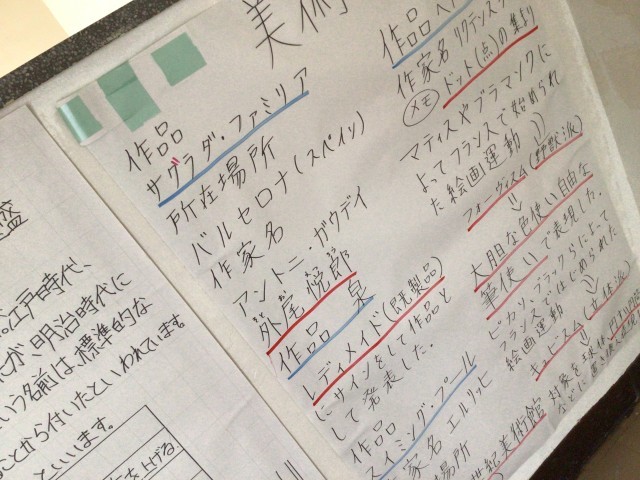 美術
作品
サグラダ・ファミリア
所在場所
バルセロナ(スペイツ)
作家名
アントニ・ガウディ
外尾悦郎
作品 泉
レディメイド(既製品)
にサインをして作品と
して発表した.
作品
スイミング・プール
作家名 エルリッヒ
場所
世紀美術館
作品
作家名 リクテンス
メモ ドット(点)の集まり
マティスやブラマンクに
よってフランスで始められ
た絵画運動
フォーヴィスム(野獣派)
大胆な色使い自由な
筆使いで表現した.
ピカソ・ブラックらによって
フランスではじめられた
絵画運動
キュビスム(立体派)
対象を球体
盤
江戸時代、
が、明治時代に
いう名前は、標準的な
ことから付いたといわれています
といいます。
上げる